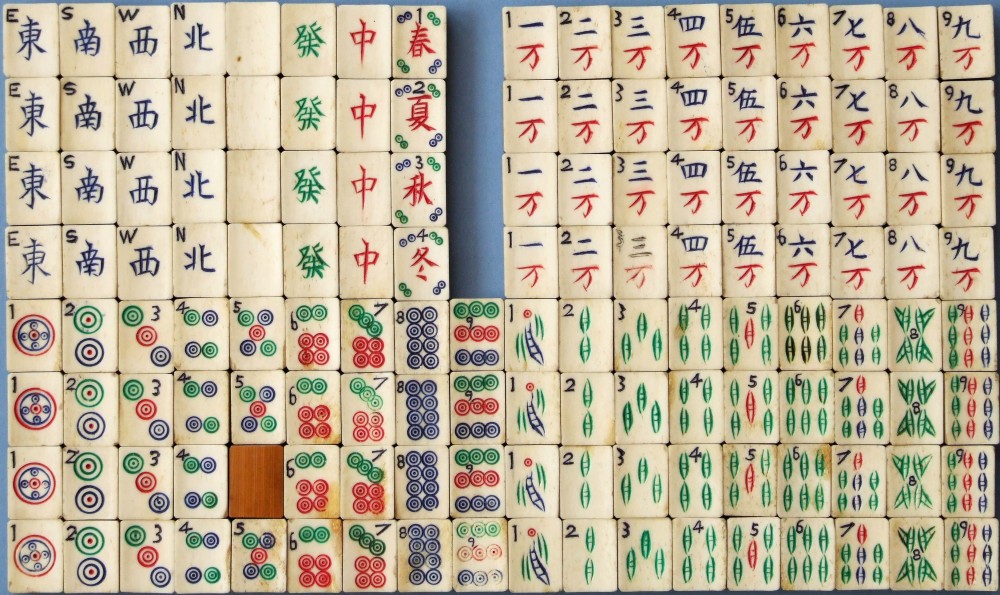 E S W N 1 1 2 3 4 5 6 7 8 9
東 南 西 北 發 中 春 一 二 三 四 伍 六 七 八 九
万 万 万 万 万 万 万 万 万
E S W N 2 1 2 3 4 5 6 7 8 9
東 南 西 北 發 中 夏 一 二 三 四 伍 六 七 八 九
万 万 万 万 万 万 万 万 万
E S W N 3 1 2 3 4 5 6 7 8 9
東 南 西 北 發 中 秋 一 二 三 四 伍 六 七 八 九
万 万 万 万 万 万 万 万 万
E S W N 4 1 2 4 5 6 7 8 9
東 南 西 北 發 中 冬 一 二 三 四 伍 六 七 八 九
万 万 万 万 万 万 万 万 万
1 2 3 4 5 6 7 8 9 1 2 3 4 5 6 7 8 9
1 2 3 4 5 6 7 8 9 1 2 3 4 5 6 7 8 9
1 2 3 4 6 7 8 9 1 2 3 4 5 6 7 8 9
1 2 3 4 5 6 7 8 9 1 2 3 4 5 6 7 8 9